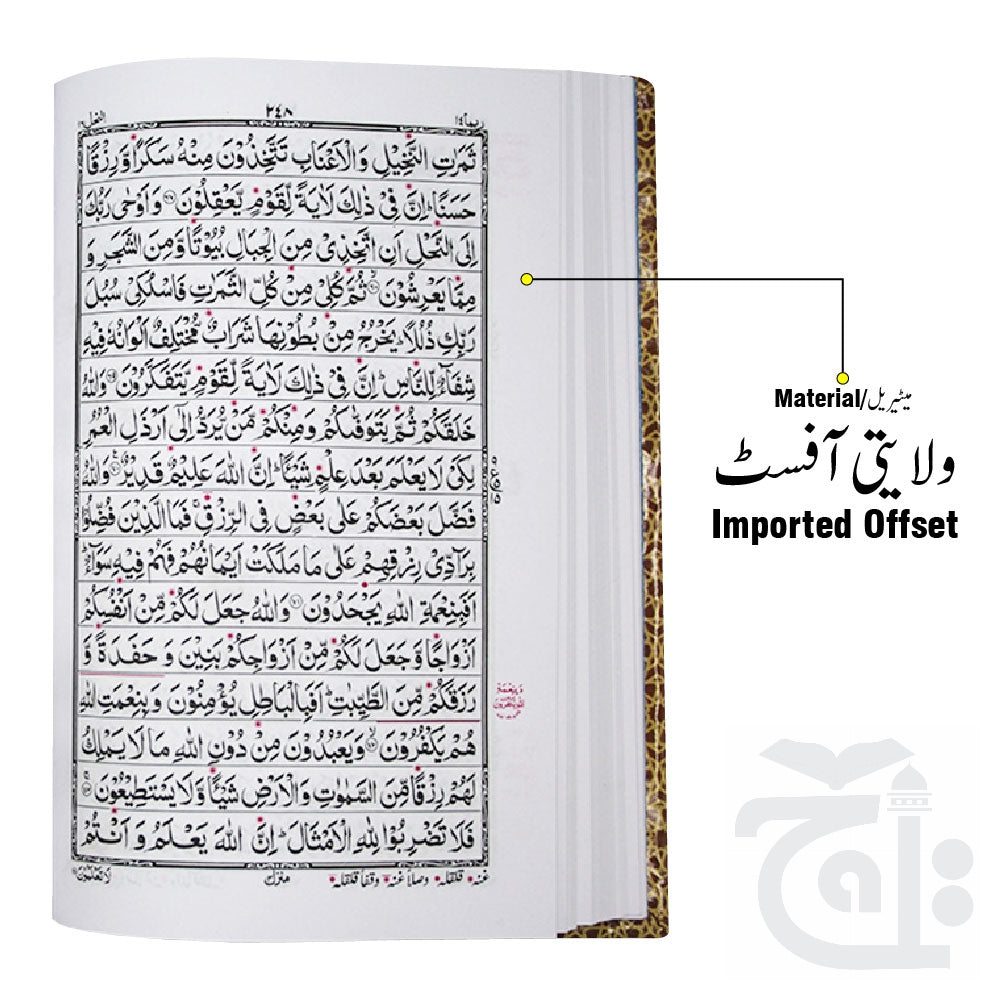 النحل ١٦
٣٤٨
ربما ١٤
ثَمَرٰتِ النَّخِيْلِ وَالْاَعْنَابِ تَتَّخِذُوْنَ مِنْهُ سَكَرًا وَّرِزْقًا
حَسَنًا ؕ اِنَّ فِيْ ذٰلِكَ لَاٰيَةً لِّقَوْمٍ يَّعْقِلُوْنَ ﴿۶۷﴾ وَاَوْحٰى رَبُّكَ
اِلَى النَّحْلِ اَنِ اتَّخِذِيْ مِنَ الْجِبَالِ بُيُوْتًا وَّمِنَ الشَّجَرِ وَ
مِمَّا يَعْرِشُوْنَ ﴿۶۸﴾ ثُمَّ كُلِيْ مِنْ كُلِّ الثَّمَرٰتِ فَاسْلُكِيْ سُبُلَ
رَبِّكِ ذُلُلًا ؕ يَخْرُجُ مِنْۢ بُطُوْنِهَا شَرَابٌ مُّخْتَلِفٌ اَلْوَانُهٗ فِيْهِ
شِفَآءٌ لِّلنَّاسِ ؕ اِنَّ فِيْ ذٰلِكَ لَاٰيَةً لِّقَوْمٍ يَّتَفَكَّرُوْنَ ﴿۶۹﴾ وَاللّٰهُ
خَلَقَكُمْ ثُمَّ يَتَوَفّٰىكُمْ وَمِنْكُمْ مَّنْ يُّرَدُّ اِلٰۤى اَرْذَلِ الْعُمُرِ
لِكَيْ لَا يَعْلَمَ بَعْدَ عِلْمٍ شَيْـًٔا ؕ اِنَّ اللّٰهَ عَلِيْمٌ قَدِيْرٌ ﴿۷۰﴾ وَاللّٰهُ
فَضَّلَ بَعْضَكُمْ عَلٰى بَعْضٍ فِي الرِّزْقِ ۚ فَمَا الَّذِيْنَ فُضِّلُوْا
بِرَآدِّيْ رِزْقِهِمْ عَلٰى مَا مَلَكَتْ اَيْمَانُهُمْ فَهُمْ فِيْهِ سَوَآءٌ ؕ
اَفَبِنِعْمَةِ اللّٰهِ يَجْحَدُوْنَ ﴿۷۱﴾ وَاللّٰهُ جَعَلَ لَكُمْ مِّنْ اَنْفُسِكُمْ
اَزْوَاجًا وَّجَعَلَ لَكُمْ مِّنْ اَزْوَاجِكُمْ بَنِيْنَ وَ حَفَدَةً وَّ
رَزَقَكُمْ مِّنَ الطَّيِّبٰتِ ؕ اَفَبِالْبَاطِلِ يُؤْمِنُوْنَ وَبِنِعْمَتِ اللّٰهِ
هُمْ يَكْفُرُوْنَ ﴿۷۲﴾ وَيَعْبُدُوْنَ مِنْ دُوْنِ اللّٰهِ مَا لَا يَمْلِكُ
لَهُمْ رِزْقًا مِّنَ السَّمٰوٰتِ وَالْاَرْضِ شَيْـًٔا وَّلَا يَسْتَطِيْعُوْنَ ﴿۷۳﴾
فَلَا تَضْرِبُوْا لِلّٰهِ الْاَمْثَالَ ؕ اِنَّ اللّٰهَ يَعْلَمُ وَ اَنْتُمْ
لَا تَعْلَمُوْنَ
منزل ٣
غنه قلقله وصلا غنه وقفا قلقله
Material/میٹیریل
ولایتی آفسٹ
Imported Offset
تاج